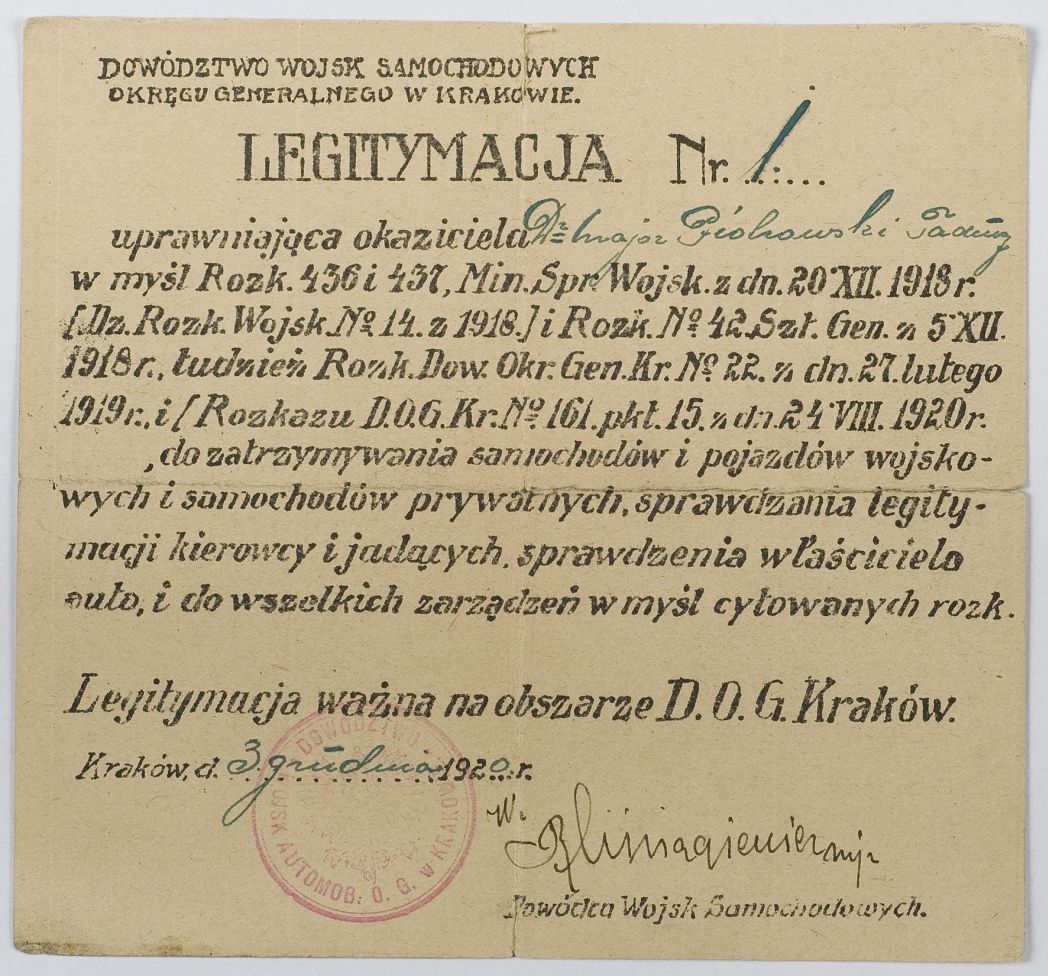 DOWÓDZTWO WOJSK SAMOCHODOWYCH
OKRĘGU GENERALNEGO W KRAKOWIE.
LEGITYMACJA Nr. 1....
uprawniająca okaziciela Dr major Piotrowski Tadeusz
w myśl Rozk. 436 i 437, Min. Spr. Wojsk. z dn. 20 XII. 1918 r.
[Dz. Rozk. Wojsk. No 14. z 1918.] i Rozk. No 42. Szt. Gen. z 5 XII.
1918 r., tudzież Rozk. Dow. Okr. Gen. Kr. No 22. z dn. 27. lutego
1919 r., i [Rozkazu D.O.G. Kr. No 161. pkt. 15. z dn. 24 VIII. 1920 r.
,do zatrzymywania samochodów i pojazdów wojsko-
wych i samochodów prywatnych, sprawdzania legity-
macji kierowcy i jadących, sprawdzenia właściciela
auta, i do wszelkich zarządzeń w myśl cytowanych rozk.
Legitymacja ważna na obszarze D. O. G. Kraków.
Kraków, d. 3 grudnia 1920 r.
DOWÓDZTWO WOJSK AUTOMOB. O. G. w KRAKOWIE
Dowódca Wojsk Samochodowych.